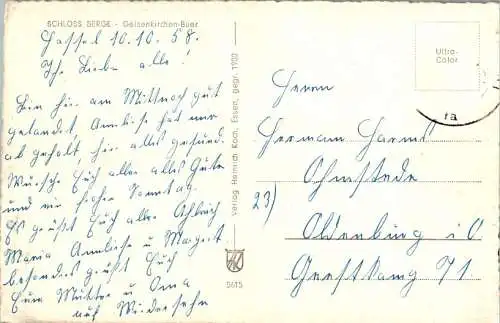 SCHLOSS BERGE - Gelsenkirchen-Buer
Hassel 10.10.58.
Ihr Lieben alle!
Bin hier am Mittwoch gut
gelandet, Annliese hat mir
ab geholt, hier alles gesund.
Wünsche Euch allen alles Gute
und ein froher Sonntag.
Es grüßt Euch alle
Maria Annliese u Margret
besonders grüßt Euch
Eure Mutter u Oma
auf Wiedersehn
Verlag Heinrich Koch, Essen, gegr. 1900
5615
Ultra-
Color
Herrn
Hermann Harms
Ohmstede
23) Oldenburg i O
Geestkamp 71